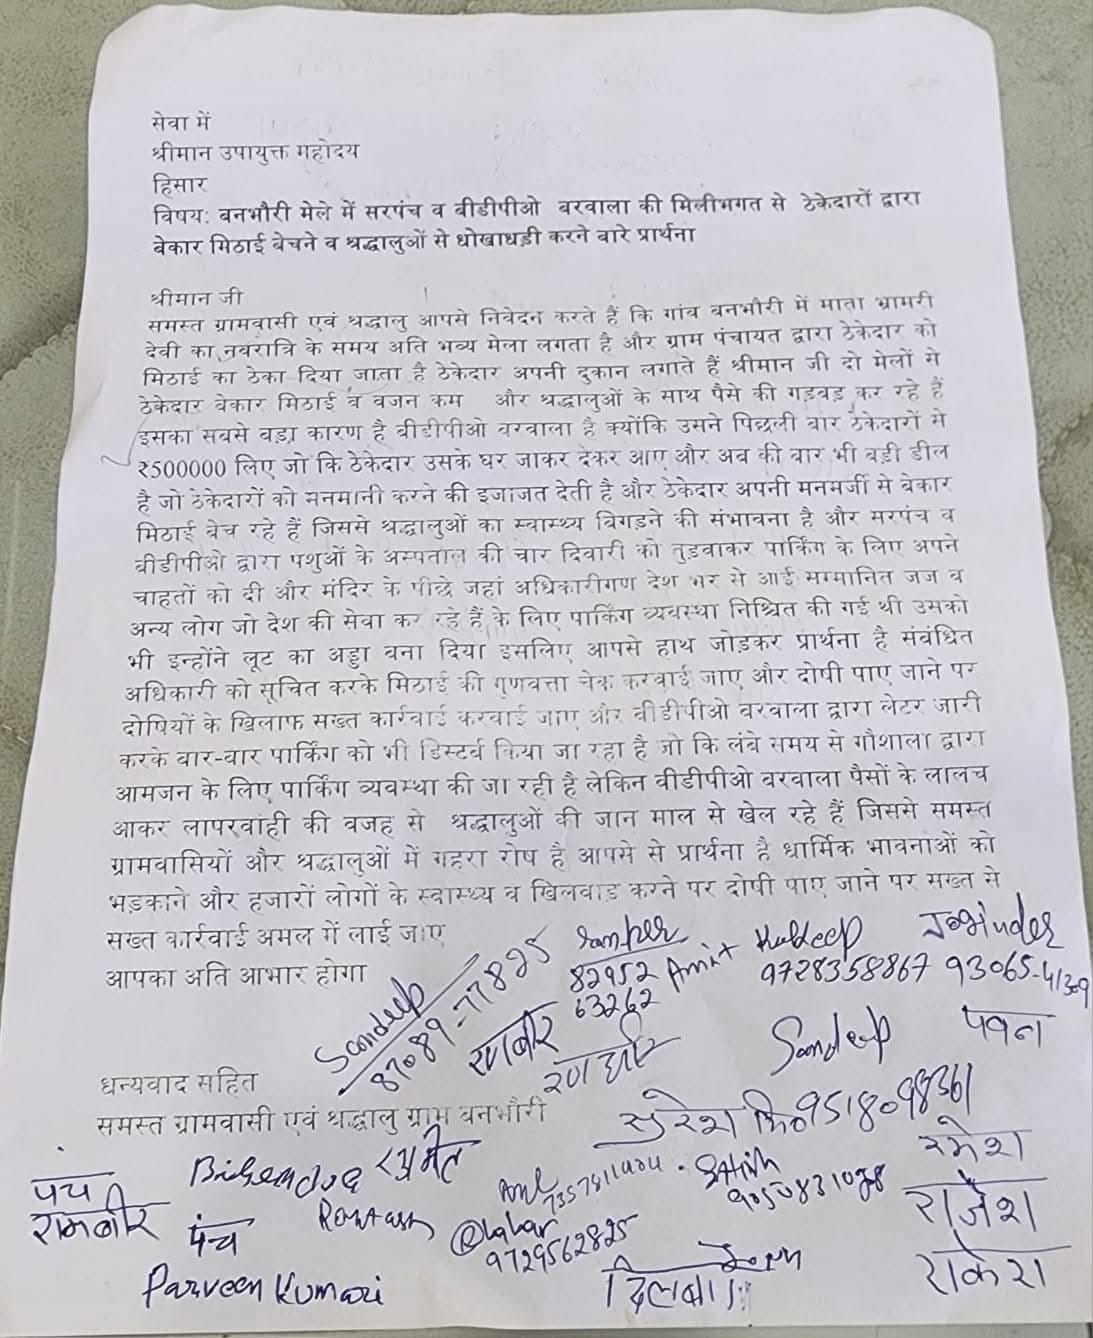 सेवा में
श्रीमान उपायुक्त महोदय
हिसार
विषय: बनभौरी मेले में सरपंच व बीडीपीओ बरवाला की मिलीभगत से ठेकेदारों द्वारा
बेकार मिठाई बेचने व श्रद्धालुओं से धोखाधड़ी करने बारे प्रार्थना
श्रीमान जी
समस्त ग्रामवासी एवं श्रद्धालु आपसे निवेदन करते हैं कि गांव बनभौरी में माता भ्रामरी
देवी का नवरात्रि के समय अति भव्य मेला लगता है और ग्राम पंचायत द्वारा ठेकेदार को
मिठाई का ठेका दिया जाता है ठेकेदार अपनी दुकान लगाते हैं श्रीमान जी दो मेलों से
ठेकेदार बेकार मिठाई व वजन कम और श्रद्धालुओं के साथ पैसे की गड़बड़ कर रहे हैं
इसका सबसे बड़ा कारण है बीडीपीओ बरवाला है क्योंकि उसने पिछली बार ठेकेदारों से
₹500000 लिए जो कि ठेकेदार उसके घर जाकर देकर आए और अब की बार भी बड़ी डील
है जो ठेकेदारों को मनमानी करने की इजाजत देती है और ठेकेदार अपनी मनमर्जी से बेकार
मिठाई बेच रहे हैं जिससे श्रद्धालुओं का स्वास्थ्य बिगड़ने की संभावना है और सरपंच व
बीडीपीओ द्वारा पशुओं के अस्पताल की चार दिवारी को तुड़वाकर पार्किंग के लिए अपने
चाहतों को दी और मंदिर के पीछे जहां अधिकारीगण देश भर से आई सम्मानित जज व
अन्य लोग जो देश की सेवा कर रहे हैं के लिए पार्किंग व्यवस्था निश्चित की गई थी उसको
भी इन्होंने लूट का अड्डा बना दिया इसलिए आपसे हाथ जोड़कर प्रार्थना है संबंधित
अधिकारी को सूचित करके मिठाई की गुणवत्ता चेक करवाई जाए और दोषी पाए जाने पर
दोषियों के खिलाफ सख्त कार्रवाई करवाई जाए और बीडीपीओ बरवाला द्वारा लेटर जारी
करके बार-बार पार्किंग को भी डिस्टर्ब किया जा रहा है जो कि लंबे समय से गौशाला द्वारा
आमजन के लिए पार्किंग व्यवस्था की जा रही है लेकिन बीडीपीओ बरवाला पैसों के लालच
आकर लापरवाही की वजह से श्रद्धालुओं की जान माल से खेल रहे हैं जिससे समस्त
ग्रामवासियों और श्रद्धालुओं में गहरा रोष है आपसे से प्रार्थना है धार्मिक भावनाओं को
भड़काने और हजारों लोगों के स्वास्थ्य व खिलवाड़ करने पर दोषी पाए जाने पर सख्त से
सख्त कार्रवाई अमल में लाई जाए
आपका अति आभार होगा
Sandeep
87089-77825
82952
63262
Amit
Kuldeep
9728358867
Joginder
93065-41309
रणबीर
रणधीर
Sandeep
पवन
धन्यवाद सहित
समस्त ग्रामवासी एवं श्रद्धालु ग्राम बनभौरी
सुरेश कि० 9518098361
रमेश
पंच
रामबीर
पंच
Parveen Kumari
9729562825
Satish
9050831078
राजेश
राकेश